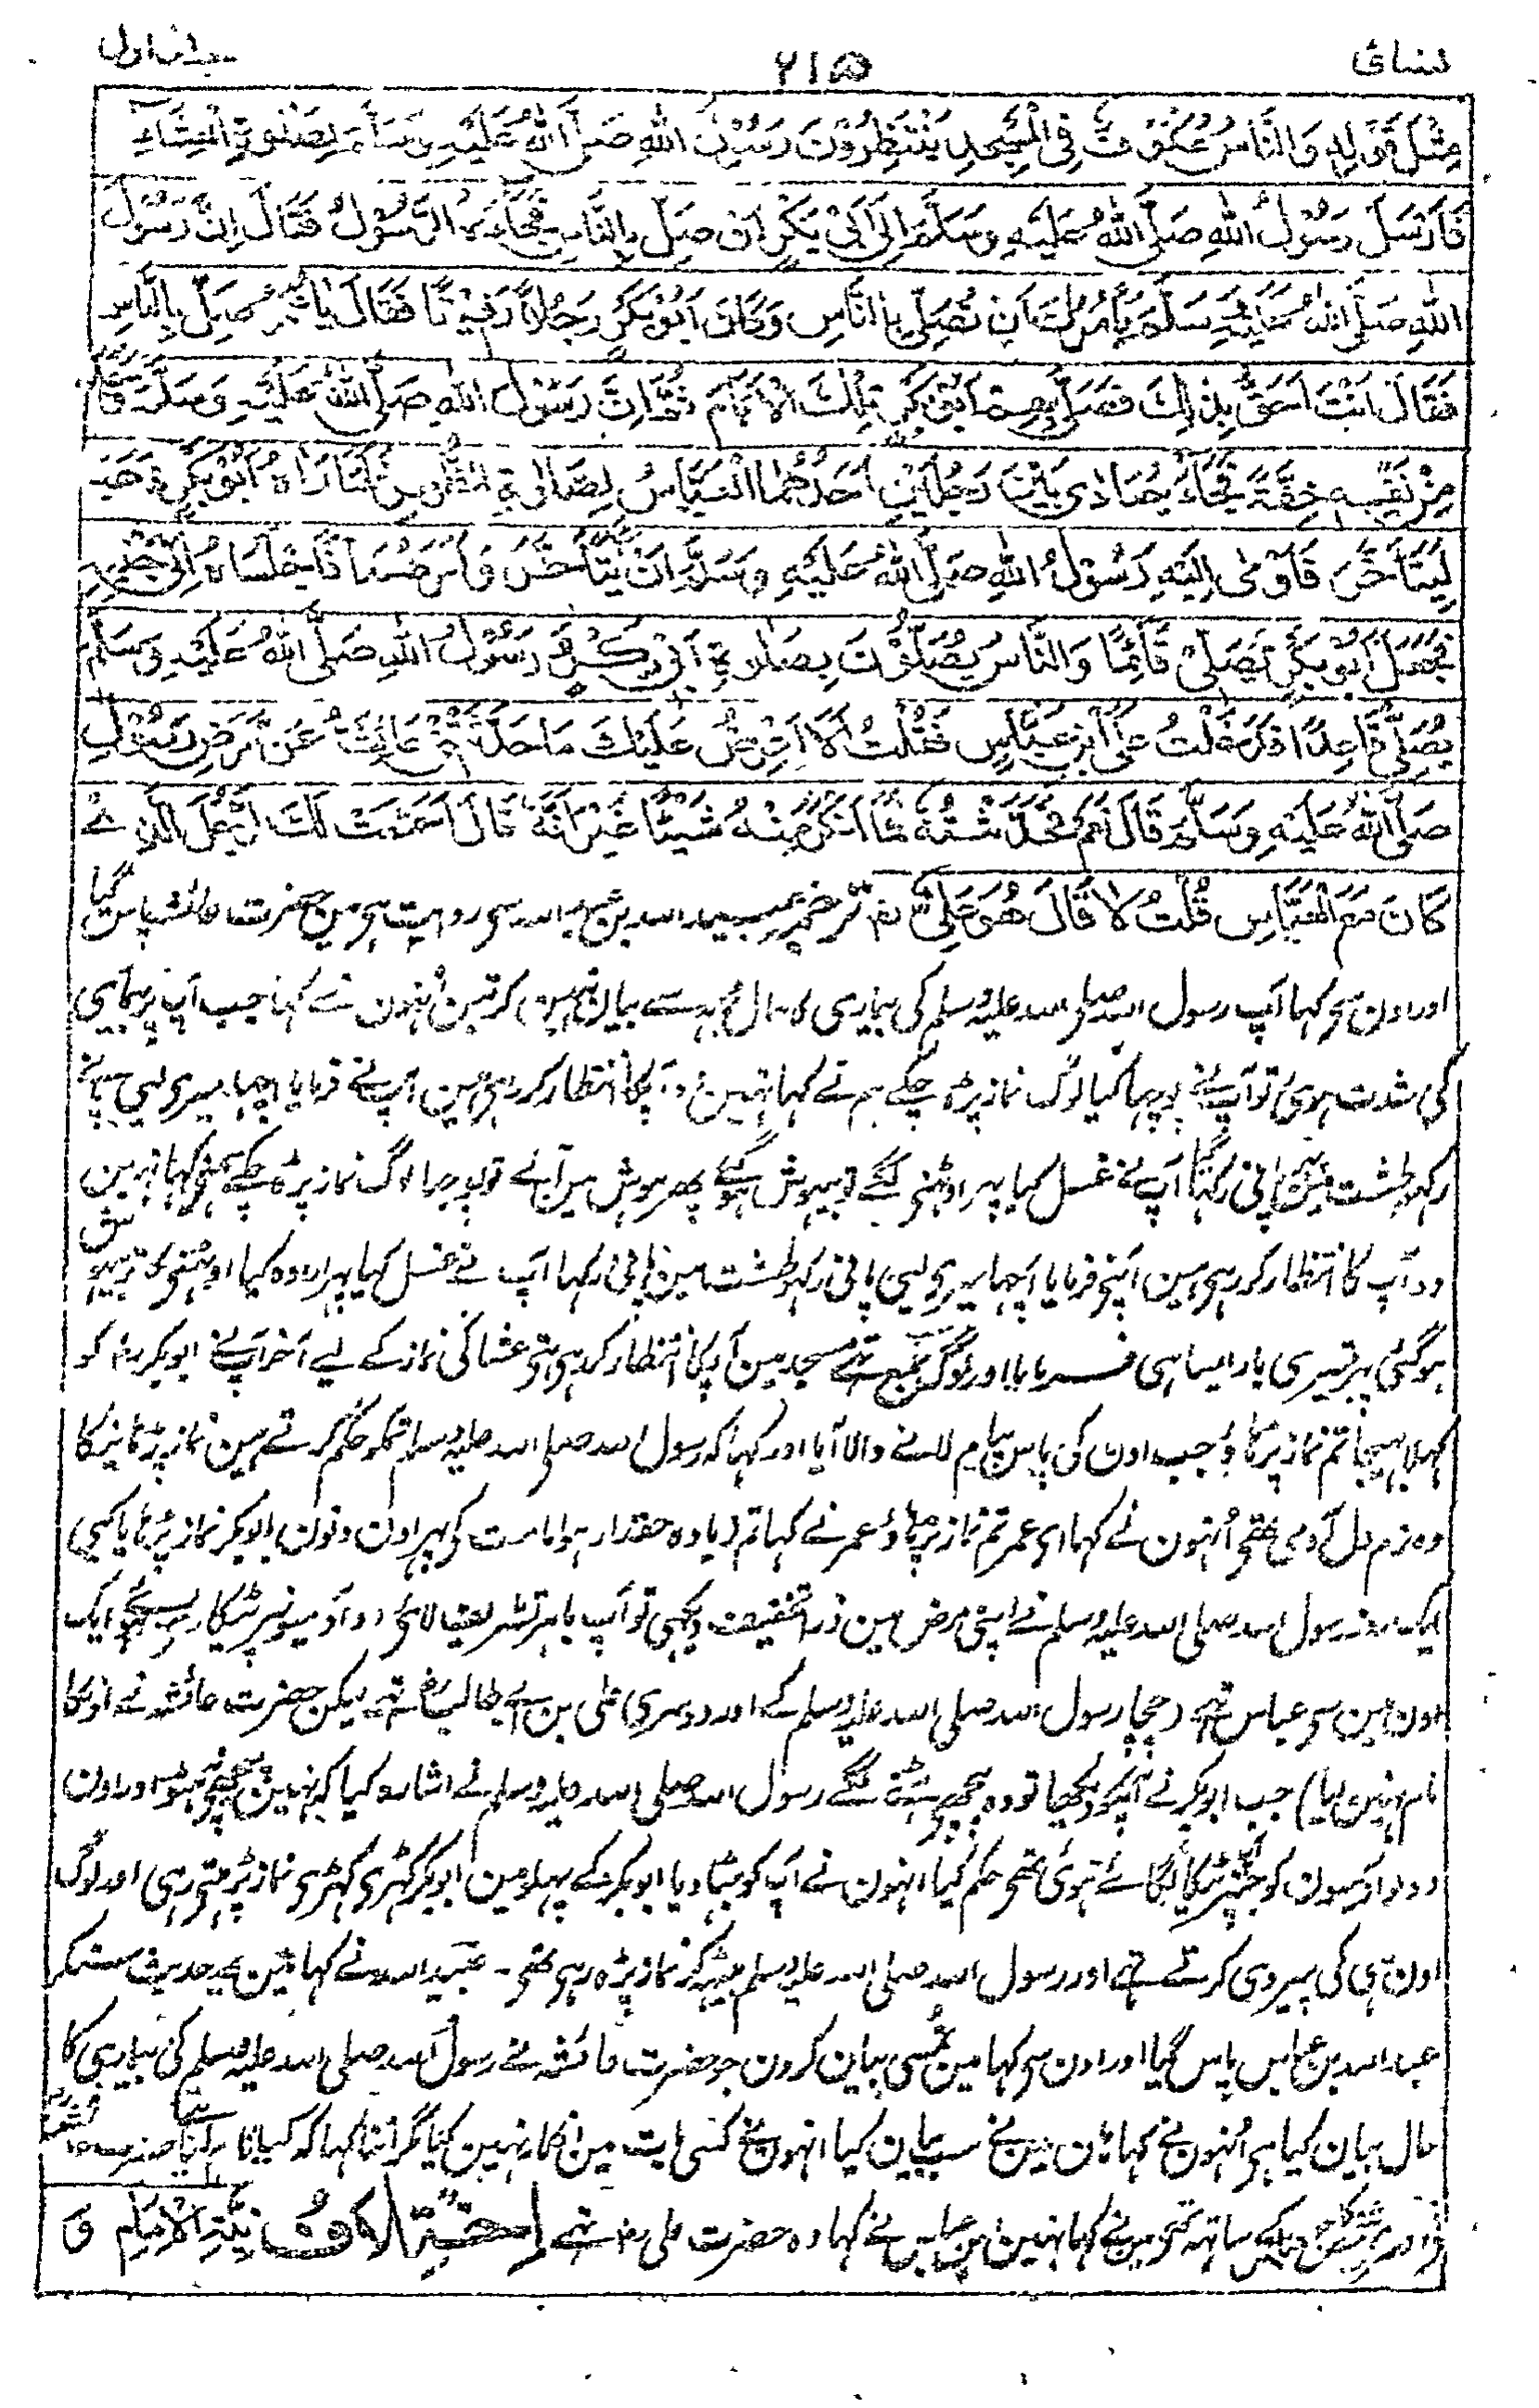 نسائی ۲۱۵ جلد اول
مِثْلَ قَوْلِهٖ وَالنَّاسُ عُكُوْفٌ فِي الْمَسْجِدِ يَنْتَظِرُوْنَ رَسُوْلَ اللهِ صَلَّى اللهُ عَلَيْهِ وَسَلَّمَ لِصَلٰوةِ الْعِشَاءِ
فَاَرْسَلَ رَسُوْلُ اللهِ صَلَّى اللهُ عَلَيْهِ وَسَلَّمَ اِلٰى اَبِيْ بَكْرٍ اَنْ صَلِّ بِالنَّاسِ فَجَاءَهُ الرَّسُوْلُ فَقَالَ اِنَّ رَسُوْلَ
اللهِ صَلَّى اللهُ عَلَيْهِ وَسَلَّمَ يَأْمُرُكَ اَنْ تُصَلِّيَ بِالنَّاسِ وَكَانَ اَبُوْ بَكْرٍ رَجُلًا رَقِيْقًا فَقَالَ يَا عُمَرُ صَلِّ بِالنَّاسِ
فَقَالَ اَنْتَ اَحَقُّ بِذٰلِكَ فَصَلّٰى بِهِمْ اَبُوْ بَكْرٍ تِلْكَ الْاَيَّامَ ثُمَّ اِنَّ رَسُوْلَ اللهِ صَلَّى اللهُ عَلَيْهِ وَسَلَّمَ وَجَدَ
مِنْ نَفْسِهٖ خِفَّةً فَجَاءَ يُهَادٰى بَيْنَ رَجُلَيْنِ اَحَدُهُمَا الْعَبَّاسُ لِصَلٰوةِ الظُّهْرِ فَلَمَّا رَاٰهُ اَبُوْ بَكْرٍ ذَهَبَ
لِيَتَاَخَّرَ فَاَوْمٰى اِلَيْهِ رَسُوْلُ اللهِ صَلَّى اللهُ عَلَيْهِ وَسَلَّمَ اَنْ لَّا يَتَاَخَّرَ وَاَمَرَهُمَا فَاَجْلَسَاهُ اِلٰى جَنْبِهٖ
فَجَعَلَ اَبُوْ بَكْرٍ يُصَلِّيْ قَائِمًا وَالنَّاسُ يُصَلُّوْنَ بِصَلٰوةِ اَبِيْ بَكْرٍ وَّ رَسُوْلُ اللهِ صَلَّى اللهُ عَلَيْهِ وَسَلَّمَ
يُصَلِّيْ قَاعِدًا فَدَخَلْتُ عَلَى ابْنِ عَبَّاسٍ فَقُلْتُ اَلَا اَعْرِضُ عَلَيْكَ مَا حَدَّثَتْنِيْ عَائِشَةُ عَنْ مَّرَضِ رَسُوْلِ
صَلَّى اللهُ عَلَيْهِ وَسَلَّمَ قَالَ نَعَمْ فَحَدَّثْتُهٗ فَمَا اَنْكَرَ مِنْهُ شَيْئًا غَيْرَ اَنَّهٗ قَالَ اَسَمَّتْ لَكَ الرَّجُلَ الَّذِيْ
كَانَ مَعَ الْعَبَّاسِ قُلْتُ لَا قَالَ هُوَ عَلِيٌّ ترجمہ عبید اللہ بن عبد اللہ سے روایت ہی مین حضرت عائشہ پاس گیا
اور اون سے کہا آپ رسول اللہ صلی اللہ علیہ وسلم کی بیماری کا حال مجہہ سے بیان نہین کرتین اُنہون نے کہا جب آپ پر بیماری
کی شدت ہوئی تو آپنے پوچہا کیا لوگ نماز پڑہ چکے ہم نے کہا نہین وہ آپکا انتظار کر رہی ہین آپنے فرمایا اچہا میری لیی پانی
رکہو طشت مین پانی رکہا گیا آپ نے غسل کیا پہر اوٹہنی لگے تو بیہوش ہوگئے پہر ہوش مین آئے تو پوچہا لوگ نماز پڑہ چکے ہمنی کہا نہین
وہ آپ کا انتظار کر رہی ہین آپنے فرمایا اچہا میری لیی پانی رکہو طشت مین پانی رکہا آپ نے غسل کیا پہر ارادہ کیا اوٹہنی کا تو بیہوش
ہوگئی پہر تیسری بار ایسا ہی فرمایا اور لوگ جمع تہے مسجد مین آپکا انتظار کر رہی تہی عشا کی نماز کے لیے آخر آپنے ابوبکر رض کو
کہلا بہیجا تم نماز پڑہاؤ جب اون کی پاس پیام لانے والا آیا اور کہا کہ رسول اللہ صلی اللہ علیہ وسلم تمکو حکم کرتے ہین نماز پڑہانیکا
وہ نرم دل آدمی تہی اُنہون نے کہا ای عمر تم نماز پڑہاؤ عمر نے کہا تم زیادہ حقدار ہو امامت کی پہر اون دنون ابوبکر نماز پڑہایا کیی
ایک روز رسول اللہ صلی اللہ علیہ وسلم نے اپنی مرض مین ذرا تخفیف دیکہی تو آپ باہر تشریف لائی دو آدمیونپر ٹیکا دیی ہوئی ایک
اون مین سے عباس تہی (چچا رسول اللہ صلی اللہ علیہ وسلم کے اور دوسری علی بن ابی طالب رض تہے لیکن حضرت عائشہ نے اونکا
نام نہین لیا) جب ابوبکر نے آپکو دیکہا تو وہ پیچہی ہٹنے لگے رسول اللہ صلی اللہ علیہ وسلم نے اشارہ کیا کہ نہین پیچہی نہٹو اور اون
دونو آدمیون کو جنپر ٹیکا لگائے ہوئی تہی حکم کیا انہون نے آپ کو بٹہا دیا ابوبکر کے پہلو مین ابوبکر کہڑی کہڑی نماز پڑہتی رہی اور لوگ
اون ہی کی پیروی کرتے تہے اور رسول اللہ صلی اللہ علیہ وسلم بیٹہکر نماز پڑہ رہی تہی۔ عبید اللہ نے کہا مین یہ حدیث سنکر
عبد اللہ بن عباس پاس گیا اور اون سے کہا مین تمسی بیان کرون جو حضرت عائشہ نے رسول اللہ صلی اللہ علیہ وسلم کی بیماری کا
حال بیان کیا ہی اُنہون نے کہا ہان مین نے سب بیان کیا انہون نے کسی بات مین انکار نہین کیا مگر اتنا کہا کہ کیا نام لیا حضرت عائشہ نے
اور شخص کا جو عباس کے ساتہہ تہی مین نے کہا نہین ابن عباس نے کہا وہ حضرت علی رض تہے اِخْتِلَافُ نِيَّةِ الْاِمَامِ وَ